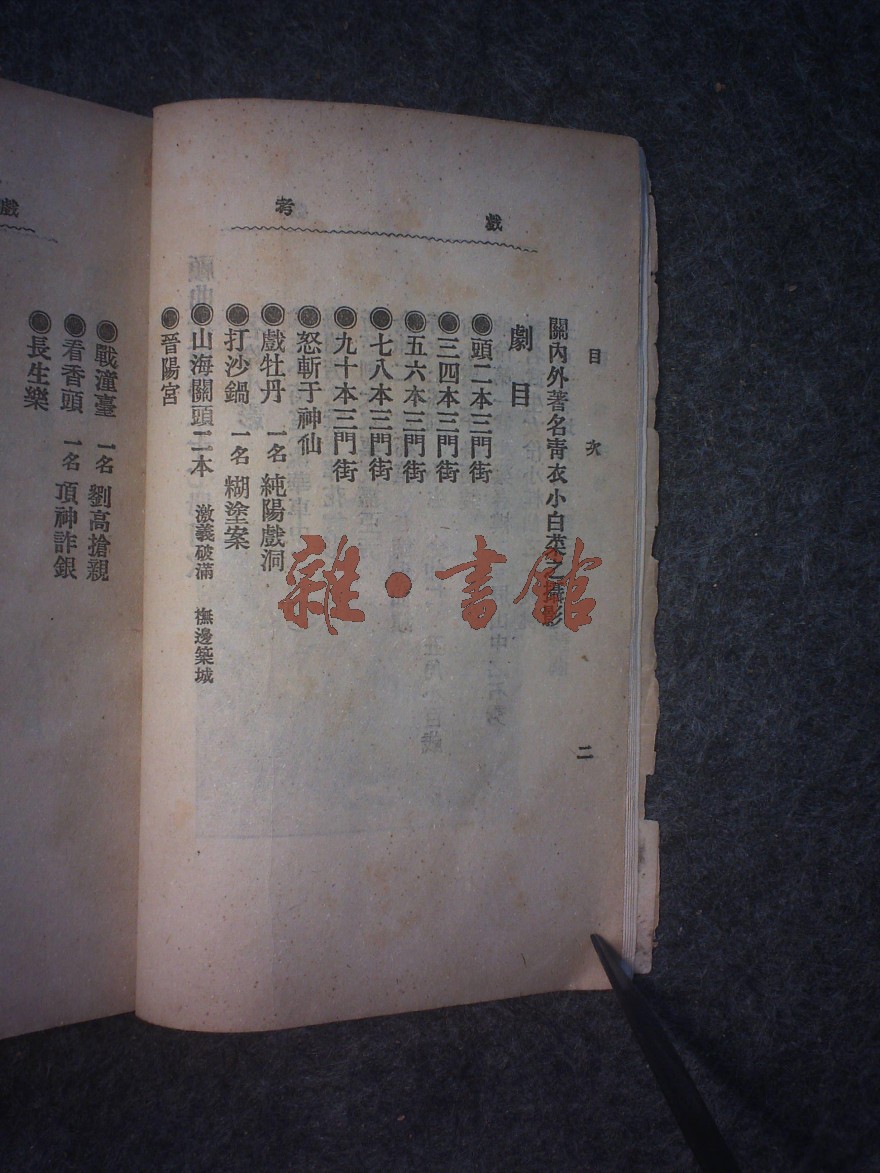 戲考
目次
二
關內外著名靑衣小白菜之攝影
劇目
◉頭二本三門街
◉三四本三門街
◉五六本三門街
◉七八本三門街
◉九十本三門街
◉怒斬于神仙
◉戲牡丹 一名 純陽戲洞
◉打沙鍋 一名 糊塗案
◉山海關頭二本 激義破滿 撫邊築城
◉晉陽宮
戲
◉戰潼臺 一名 劉高搶親
◉看香頭 一名 頂神詐銀
◉長生樂
雜·書館